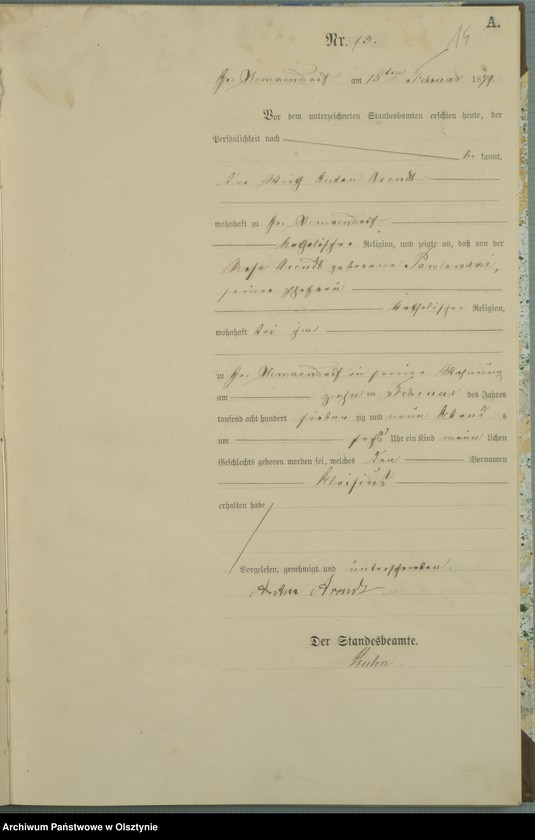 A.
14
Nr. 13.
Gr. am 15ten Februar 1879.
Vor dem unterzeichneten Standesbeamten erschien heute, der
Persönlichkeit nach
be kannt,
der Wirth Anton Arendt
wohnhaft zu Gr.
katholischer Religion, und zeigte an, daß von der
Rosa Arendt geborene
seiner Ehefrau
katholischer Religion,
wohnhaft bei ihm
zu Gr. in seiner Wohnung
am zehnten Februar des Jahres
tausend acht hundert sieben zig und neun Abends
um sechs Uhr ein Kind männ lichen
Geschlechts geboren worden sei, welches den Vornamen
Aloisius
erhalten habe
Vorgelesen, genehmigt und unterschrieben.
Anton Arendt
Der Standesbeamte.
Kuhn
Archiwum Państwowe w Olsztynie